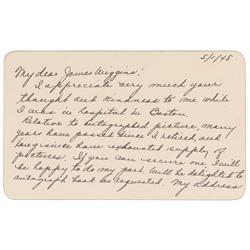 5/1/45
My dear James Wiggins:
I appreciate very much your
thought and kindness to me while
I was in hospital in Boston.
Relative to autographed picture, many
years have passed since I retired and
long since have exhausted supply of
pictures. If you can secure me, I will
be happy to do my part. Will be delighted to
autograph book as requested. My address